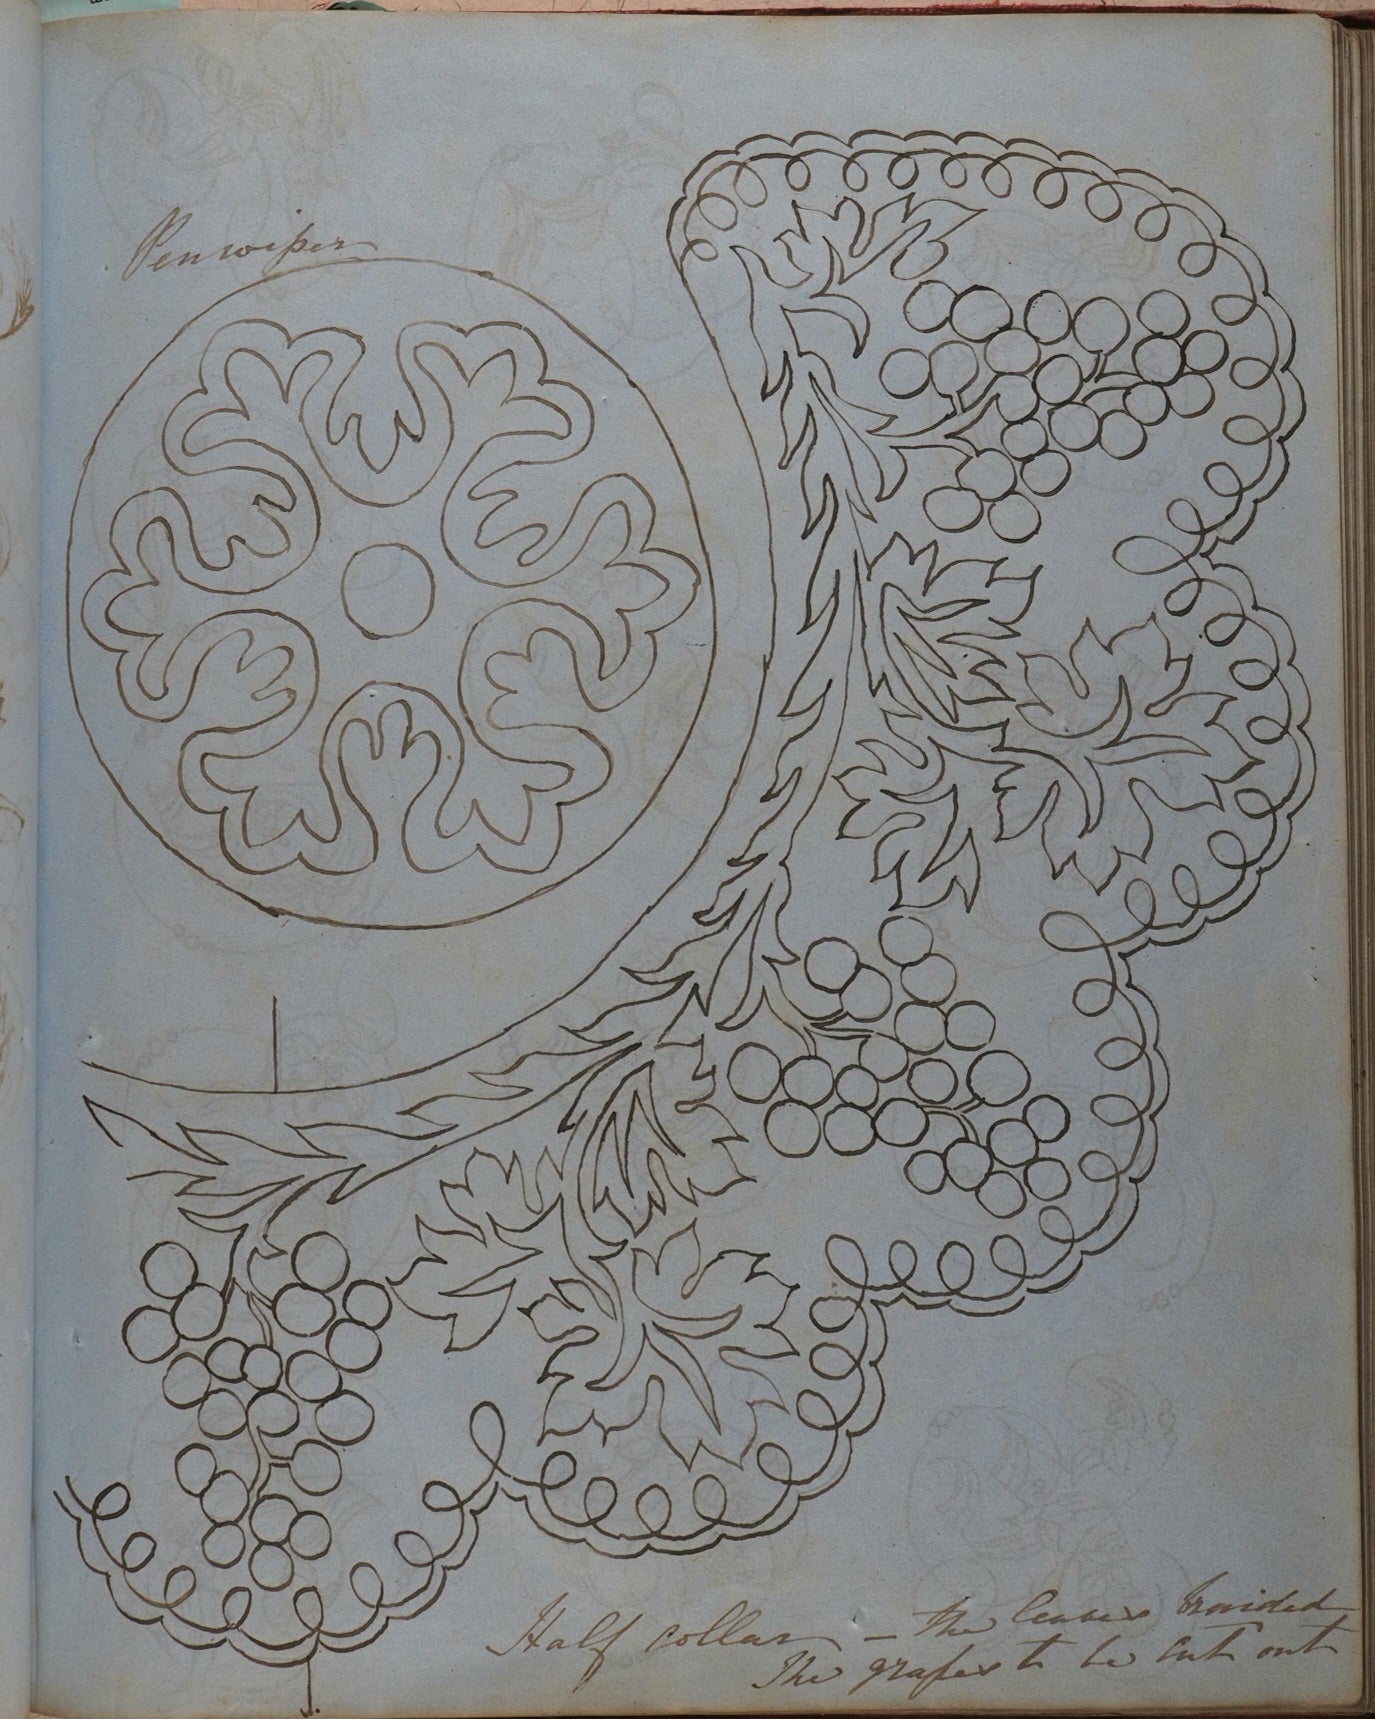 Penwiper
Half collar – the leaves braided
The grapes to be cut out